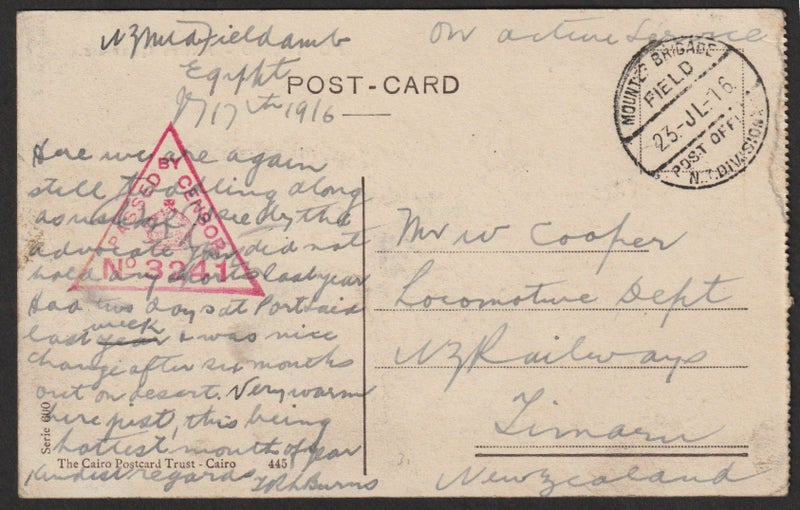 NZ Md Field amb
Egipht
17th 1916
On active Service
POST-CARD
MOUNTED BRIGADE
FIELD
23-JL-16
POST OFFI
N.Z. DIVISION
PASSED BY CENSOR
No 3241
Here we are again
still toddling along
as usual I see by the
advocate you did not
hold any sports last year
Had two days at Portsaid
last year week & was nice
change after six months
out on desert. Very warm
here just, this being
hottest month of year
Kindest regards
Burns
Mr W Cooper
Locomotive Dept
NZ Railways
Timaru
New Zealand
Serie 600
The Cairo Postcard Trust - Cairo 445